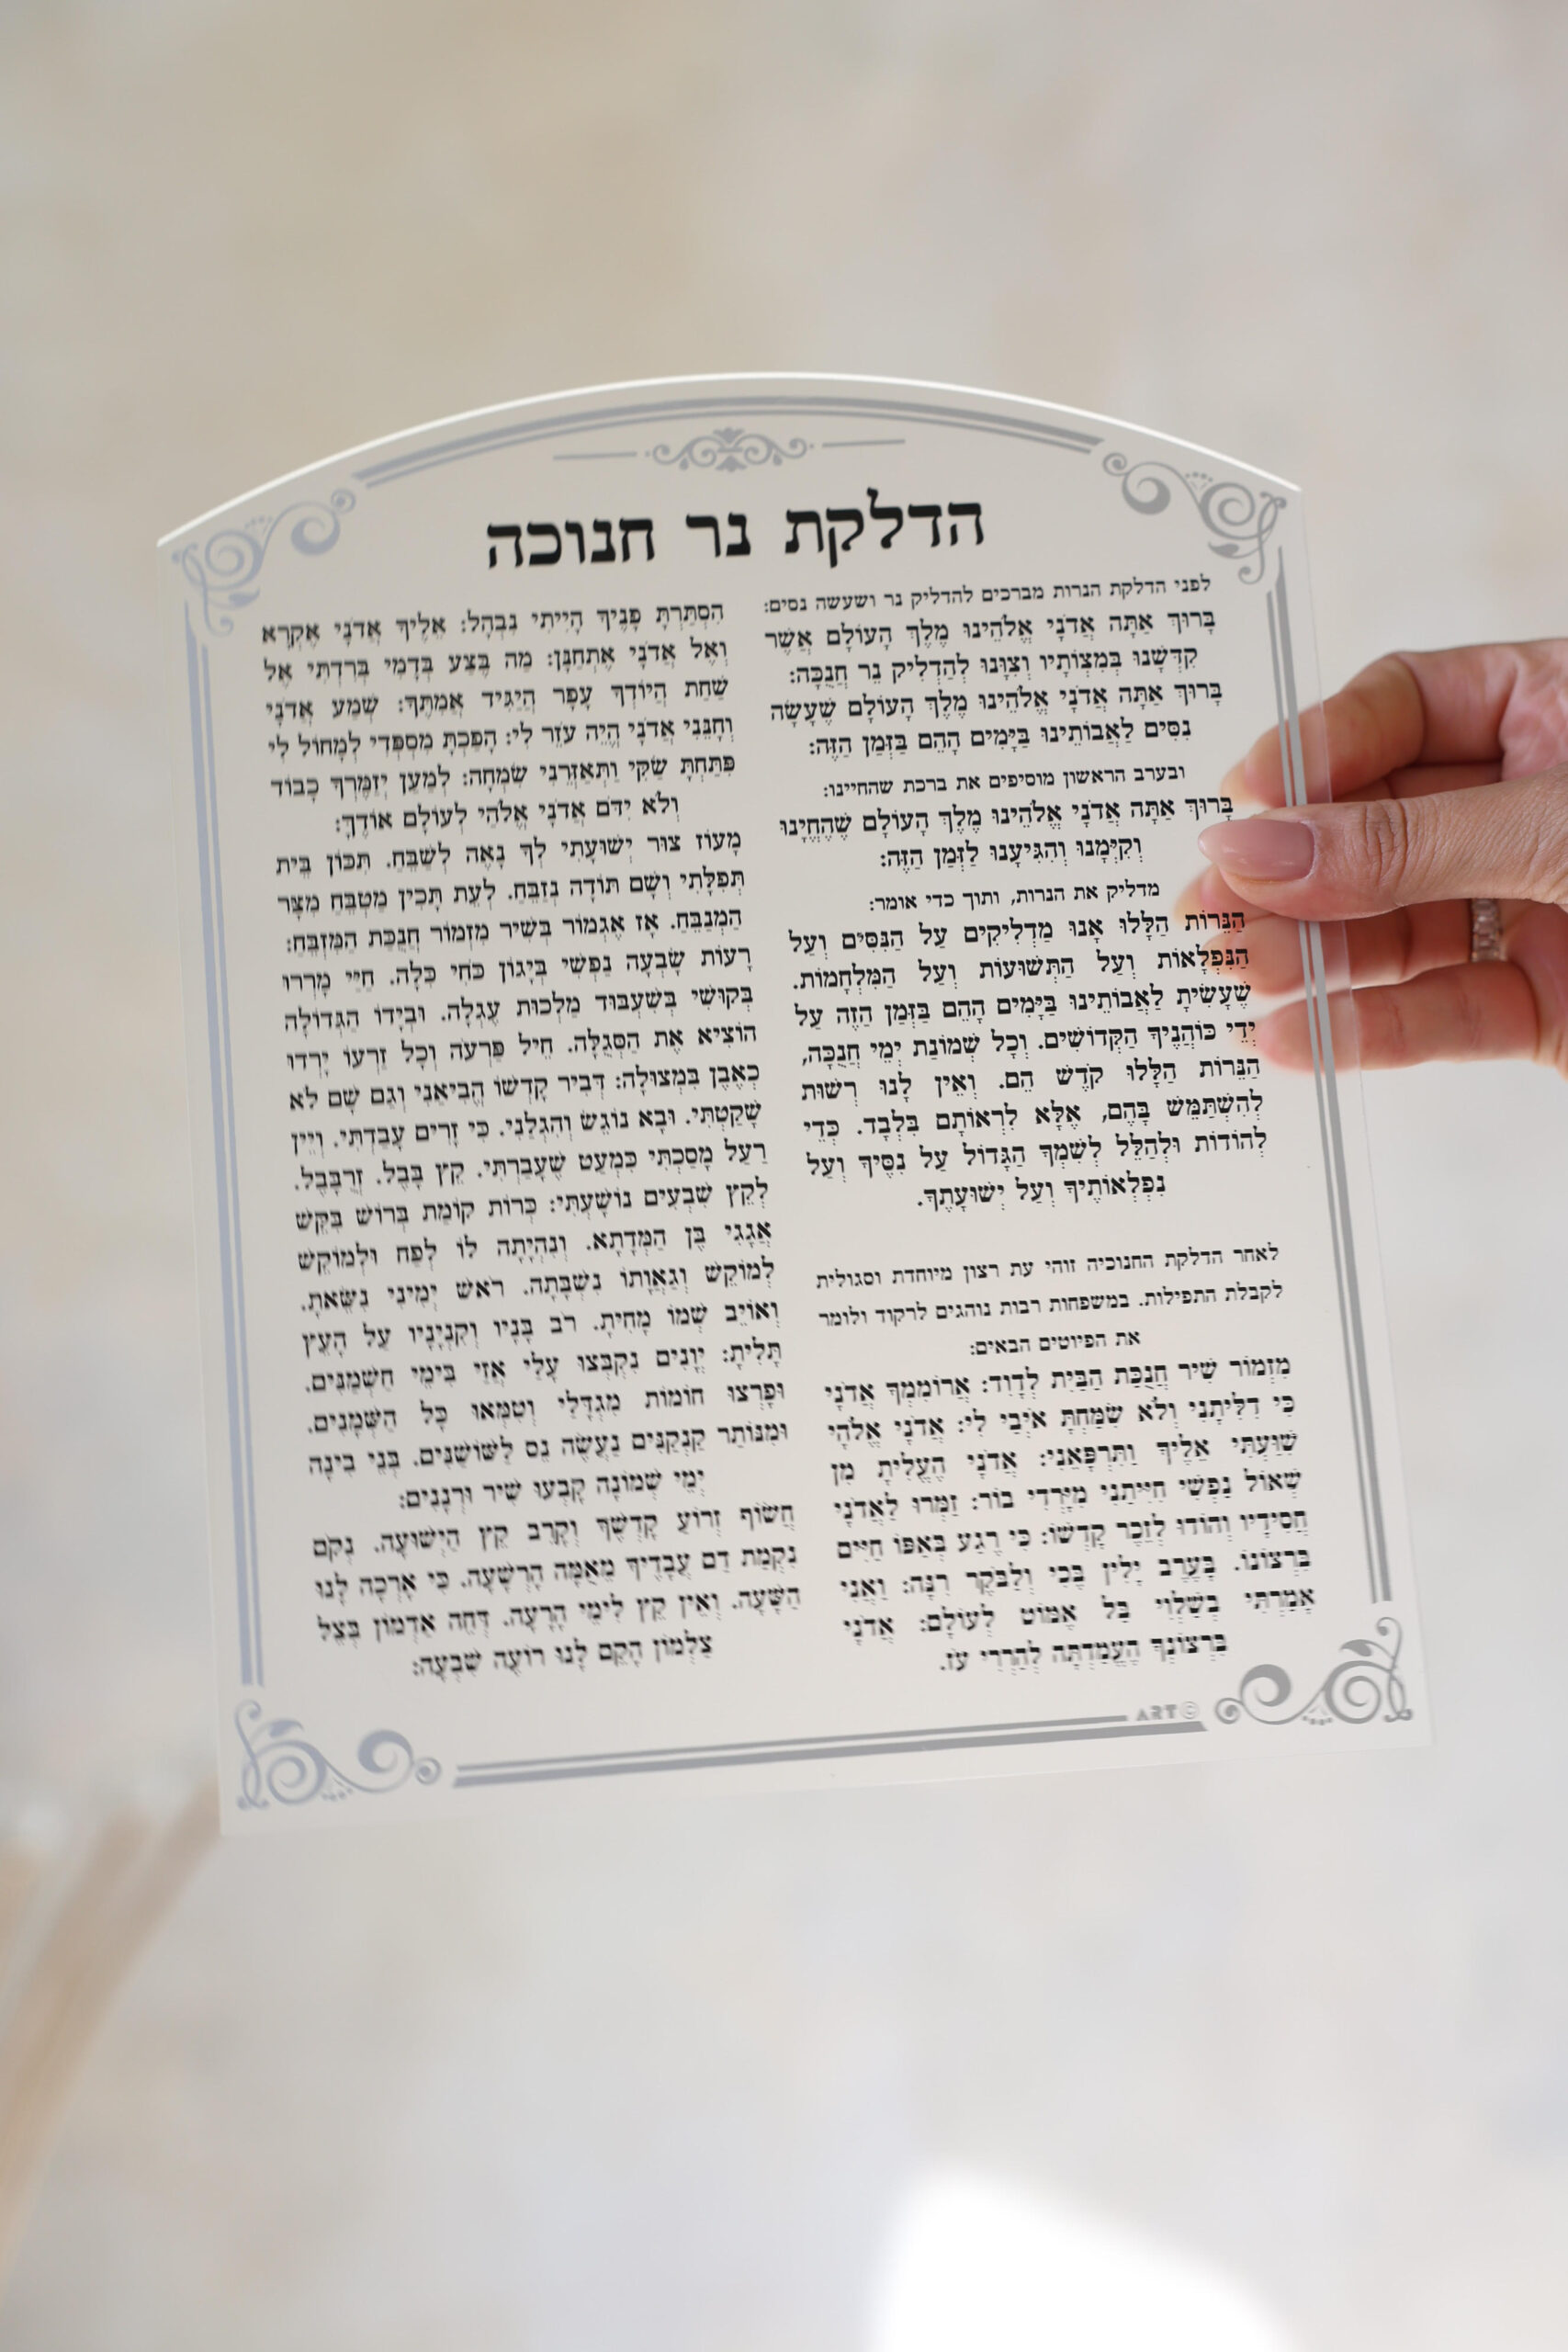 הדלקת נר חנוכה
לפני הדלקת הנרות מברכים להדליק נר ושעשה נסים:
בָּרוּךְ אַתָּה אֲדֹנָי אֱלֹהֵינוּ מֶלֶךְ הָעוֹלָם אֲשֶׁר
קִדְּשָׁנוּ בְּמִצְוֹתָיו וְצִוָּנוּ לְהַדְלִיק נֵר חֲנֻכָּה:
בָּרוּךְ אַתָּה אֲדֹנָי אֱלֹהֵינוּ מֶלֶךְ הָעוֹלָם שֶׁעָשָׂה
נִסִּים לַאֲבוֹתֵינוּ בַּיָּמִים הָהֵם בַּזְּמַן הַזֶּה:
ובערב הראשון מוסיפים את ברכת שהחיינו:
בָּרוּךְ אַתָּה אֲדֹנָי אֱלֹהֵינוּ מֶלֶךְ הָעוֹלָם שֶׁהֶחֱיָנוּ
וְקִיְּמָנוּ וְהִגִּיעָנוּ לַזְּמַן הַזֶּה:
מדליק את הנרות, ותוך כדי אומר:
הַנֵּרוֹת הַלָּלוּ אָנוּ מַדְלִיקִים עַל הַנִּסִּים וְעַל
הַנִּפְלָאוֹת וְעַל הַתְּשׁוּעוֹת וְעַל הַמִּלְחָמוֹת.
שֶׁעָשִׂיתָ לַאֲבוֹתֵינוּ בַּיָּמִים הָהֵם בַּזְּמַן הַזֶּה עַל
יְדֵי כּוֹהֲנֶיךָ הַקְּדוֹשִׁים. וְכָל שְׁמוֹנַת יְמֵי חֲנֻכָּה,
הַנֵּרוֹת הַלָּלוּ קֹדֶשׁ הֵם. וְאֵין לָנוּ רְשׁוּת
לְהִשְׁתַּמֵּשׁ בָּהֶם, אֶלָּא לִרְאוֹתָם בִּלְבַד. כְּדֵי
לְהוֹדוֹת וּלְהַלֵּל לְשִׁמְךָ הַגָּדוֹל עַל נִסֶּיךָ וְעַל
נִפְלְאוֹתֶיךָ וְעַל יְשׁוּעָתֶךָ.
לאחר הדלקת החנוכיה זוהי עת רצון מיוחדת וסגולית
לקבלת התפילות. במשפחות רבות נוהגים לרקוד ולומר
את הפיוטים הבאים:
מִזְמוֹר שִׁיר חֲנֻכַּת הַבַּיִת לְדָוִד: אֲרוֹמִמְךָ אֲדֹנָי
כִּי דִלִּיתָנִי וְלֹא שִׂמַּחְתָּ אֹיְבַי לִי: אֲדֹנָי אֱלֹהָי
שִׁוַּעְתִּי אֵלֶיךָ וַתִּרְפָּאֵנִי: אֲדֹנָי הֶעֱלִיתָ מִן
שְׁאוֹל נַפְשִׁי חִיִּיתַנִי מִיָּרְדִי בוֹר: זַמְּרוּ לַאֲדֹנָי
חֲסִידָיו וְהוֹדוּ לְזֵכֶר קָדְשׁוֹ: כִּי רֶגַע בְּאַפּוֹ חַיִּים
בִּרְצוֹנוֹ. בָּעֶרֶב יָלִין בֶּכִי וְלַבֹּקֶר רִנָּה: וַאֲנִי
אָמַרְתִּי בְשַׁלְוִי בַּל אֶמּוֹט לְעוֹלָם: אֲדֹנָי
בִּרְצוֹנְךָ הֶעֱמַדְתָּה לְהַרְרִי עֹז.
הִסְתַּרְתָּ פָנֶיךָ הָיִיתִי נִבְהָל: אֵלֶיךָ אֲדֹנָי אֶקְרָא
וְאֶל אֲדֹנָי אֶתְחַנָּן: מַה בֶּצַע בְּדָמִי בְּרִדְתִּי אֶל
שַׁחַת הֲיוֹדְךָ עָפָר הֲיַגִּיד אֲמִתֶּךָ: שְׁמַע אֲדֹנָי
וְחָנֵּנִי אֲדֹנָי הֱיֵה עֹזֵר לִי: הָפַכְתָּ מִסְפְּדִי לְמָחוֹל לִי
פִּתַּחְתָּ שַׂקִּי וַתְּאַזְּרֵנִי שִׂמְחָה: לְמַעַן יְזַמֶּרְךָ כָבוֹד
וְלֹא יִדֹּם אֲדֹנָי אֱלֹהַי לְעוֹלָם אוֹדֶךָּ:
מָעוֹז צוּר יְשׁוּעָתִי לְךָ נָאֶה לְשַׁבֵּחַ. תִּכּוֹן בֵּית
תְּפִלָּתִי וְשָׁם תּוֹדָה נְזַבֵּחַ. לְעֵת תָּכִין מַטְבֵּחַ מִצָּר
הַמְנַבֵּחַ. אָז אֶגְמוֹר בְּשִׁיר מִזְמוֹר חֲנֻכַּת הַמִּזְבֵּחַ:
רָעוֹת שָׂבְעָה נַפְשִׁי בְּיָגוֹן כֹּחִי כִּלָּה. חַיַּי מֵרְרוּ
בְקוּשִׁי בְּשִׁעְבּוּד מַלְכוּת עֶגְלָה. וּבְיָדוֹ הַגְּדוֹלָה
הוֹצִיא אֶת הַסְּגֻלָּה. חֵיל פַּרְעֹה וְכָל זַרְעוֹ יָרְדוּ
כְּאֶבֶן בִּמְצוּלָה: דְּבִיר קָדְשׁוֹ הֱבִיאַנִי וְגַם שָׁם לֹא
שָׁקַטְתִּי. וּבָא נוֹגֵשׂ וְהִגְלַנִי. כִּי זָרִים עָבַדְתִּי. וְיֵין
רַעַל מָסַכְתִּי כִּמְעַט שֶׁעָבַרְתִּי. קֵץ בָּבֶל. זְרֻבָּבֶל.
לְקֵץ שִׁבְעִים נוֹשָׁעְתִּי: כְּרוֹת קוֹמַת בְּרוֹשׁ בִּקֵּשׁ
אֲגָגִי בֶּן הַמְּדָתָא. וְנִהְיָתָה לוֹ לְפַח וּלְמוֹקֵשׁ
לְמוֹקֵשׁ וְגַאֲוָתוֹ נִשְׁבָּתָה. רֹאשׁ יְמִינִי נִשֵּׂאתָ.
וְאוֹיֵב שְׁמוֹ מָחִיתָ. רֹב בָּנָיו וְקִנְיָנָיו עַל הָעֵץ
תָּלִיתָ: יְוָנִים נִקְבְּצוּ עָלַי אֲזַי בִּימֵי חַשְׁמַנִּים.
וּפָרְצוּ חוֹמוֹת מִגְדָּלַי וְטִמְּאוּ כָּל הַשְּׁמָנִים.
וּמִנּוֹתַר קַנְקַנִּים נַעֲשָׂה נֵס לַשּׁוֹשַׁנִּים. בְּנֵי בִינָה
יְמֵי שְׁמוֹנָה קָבְעוּ שִׁיר וּרְנָנִים:
חֲשׂוֹף זְרוֹעַ קָדְשֶׁךָ וְקָרֵב קֵץ הַיְשׁוּעָה. נְקֹם
נִקְמַת דַּם עֲבָדֶיךָ מֵאֻמָּה הָרְשָׁעָה. כִּי אָרְכָה לָנוּ
הַשָּׁעָה. וְאֵין קֵץ לִימֵי הָרָעָה. דְּחֵה אַדְמוֹן בְּצֵל
צַלְמוֹן הָקֵם לָנוּ רוֹעֶה שִׁבְעָה:
ART©